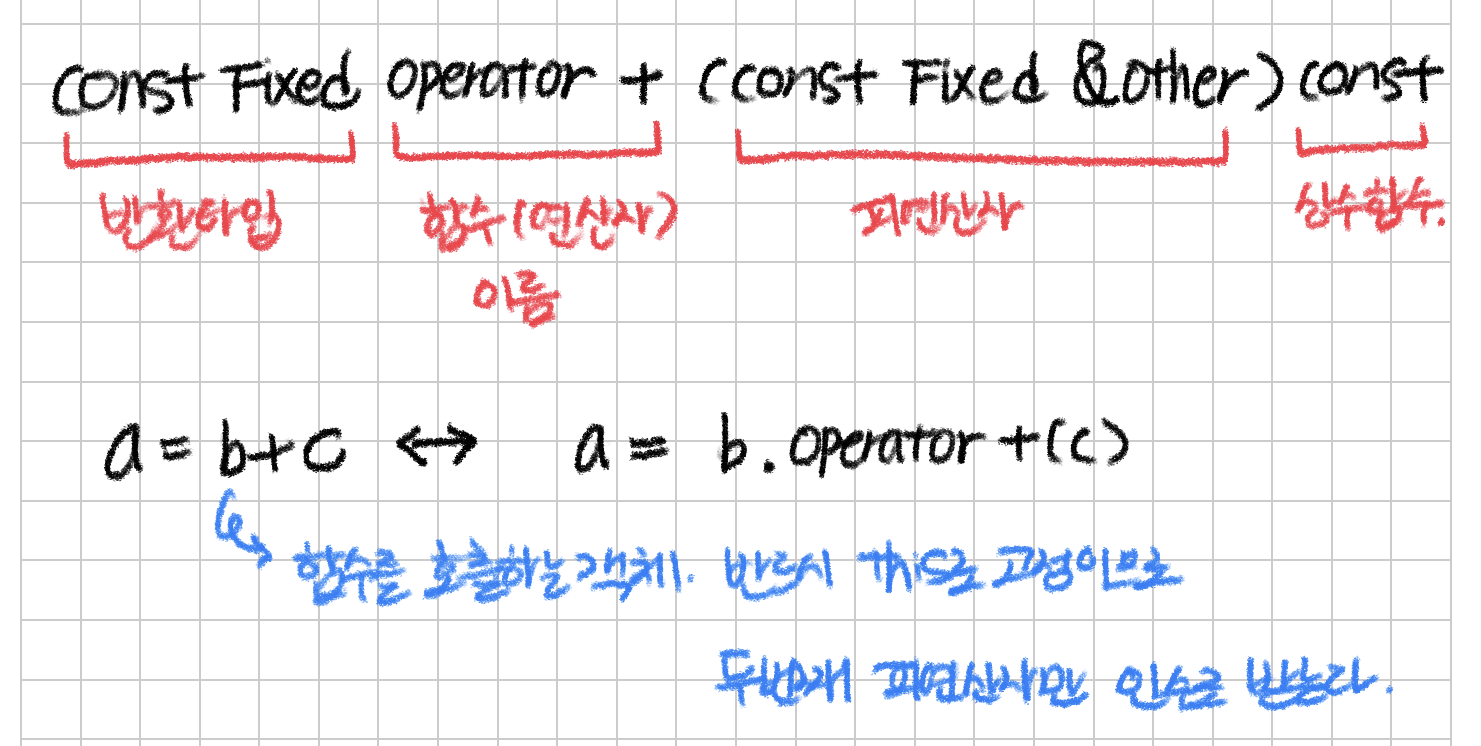 const Fixed operator + (const Fixed &other) const
반환타입 함수(연산자) 피연산자 상수함수.
이름
a = b+c ↔ a = b.operator+(c)
함수를 호출하는 객체. 반드시 this로 고정이므로
두번째 피연산자만 인수로 받는다.